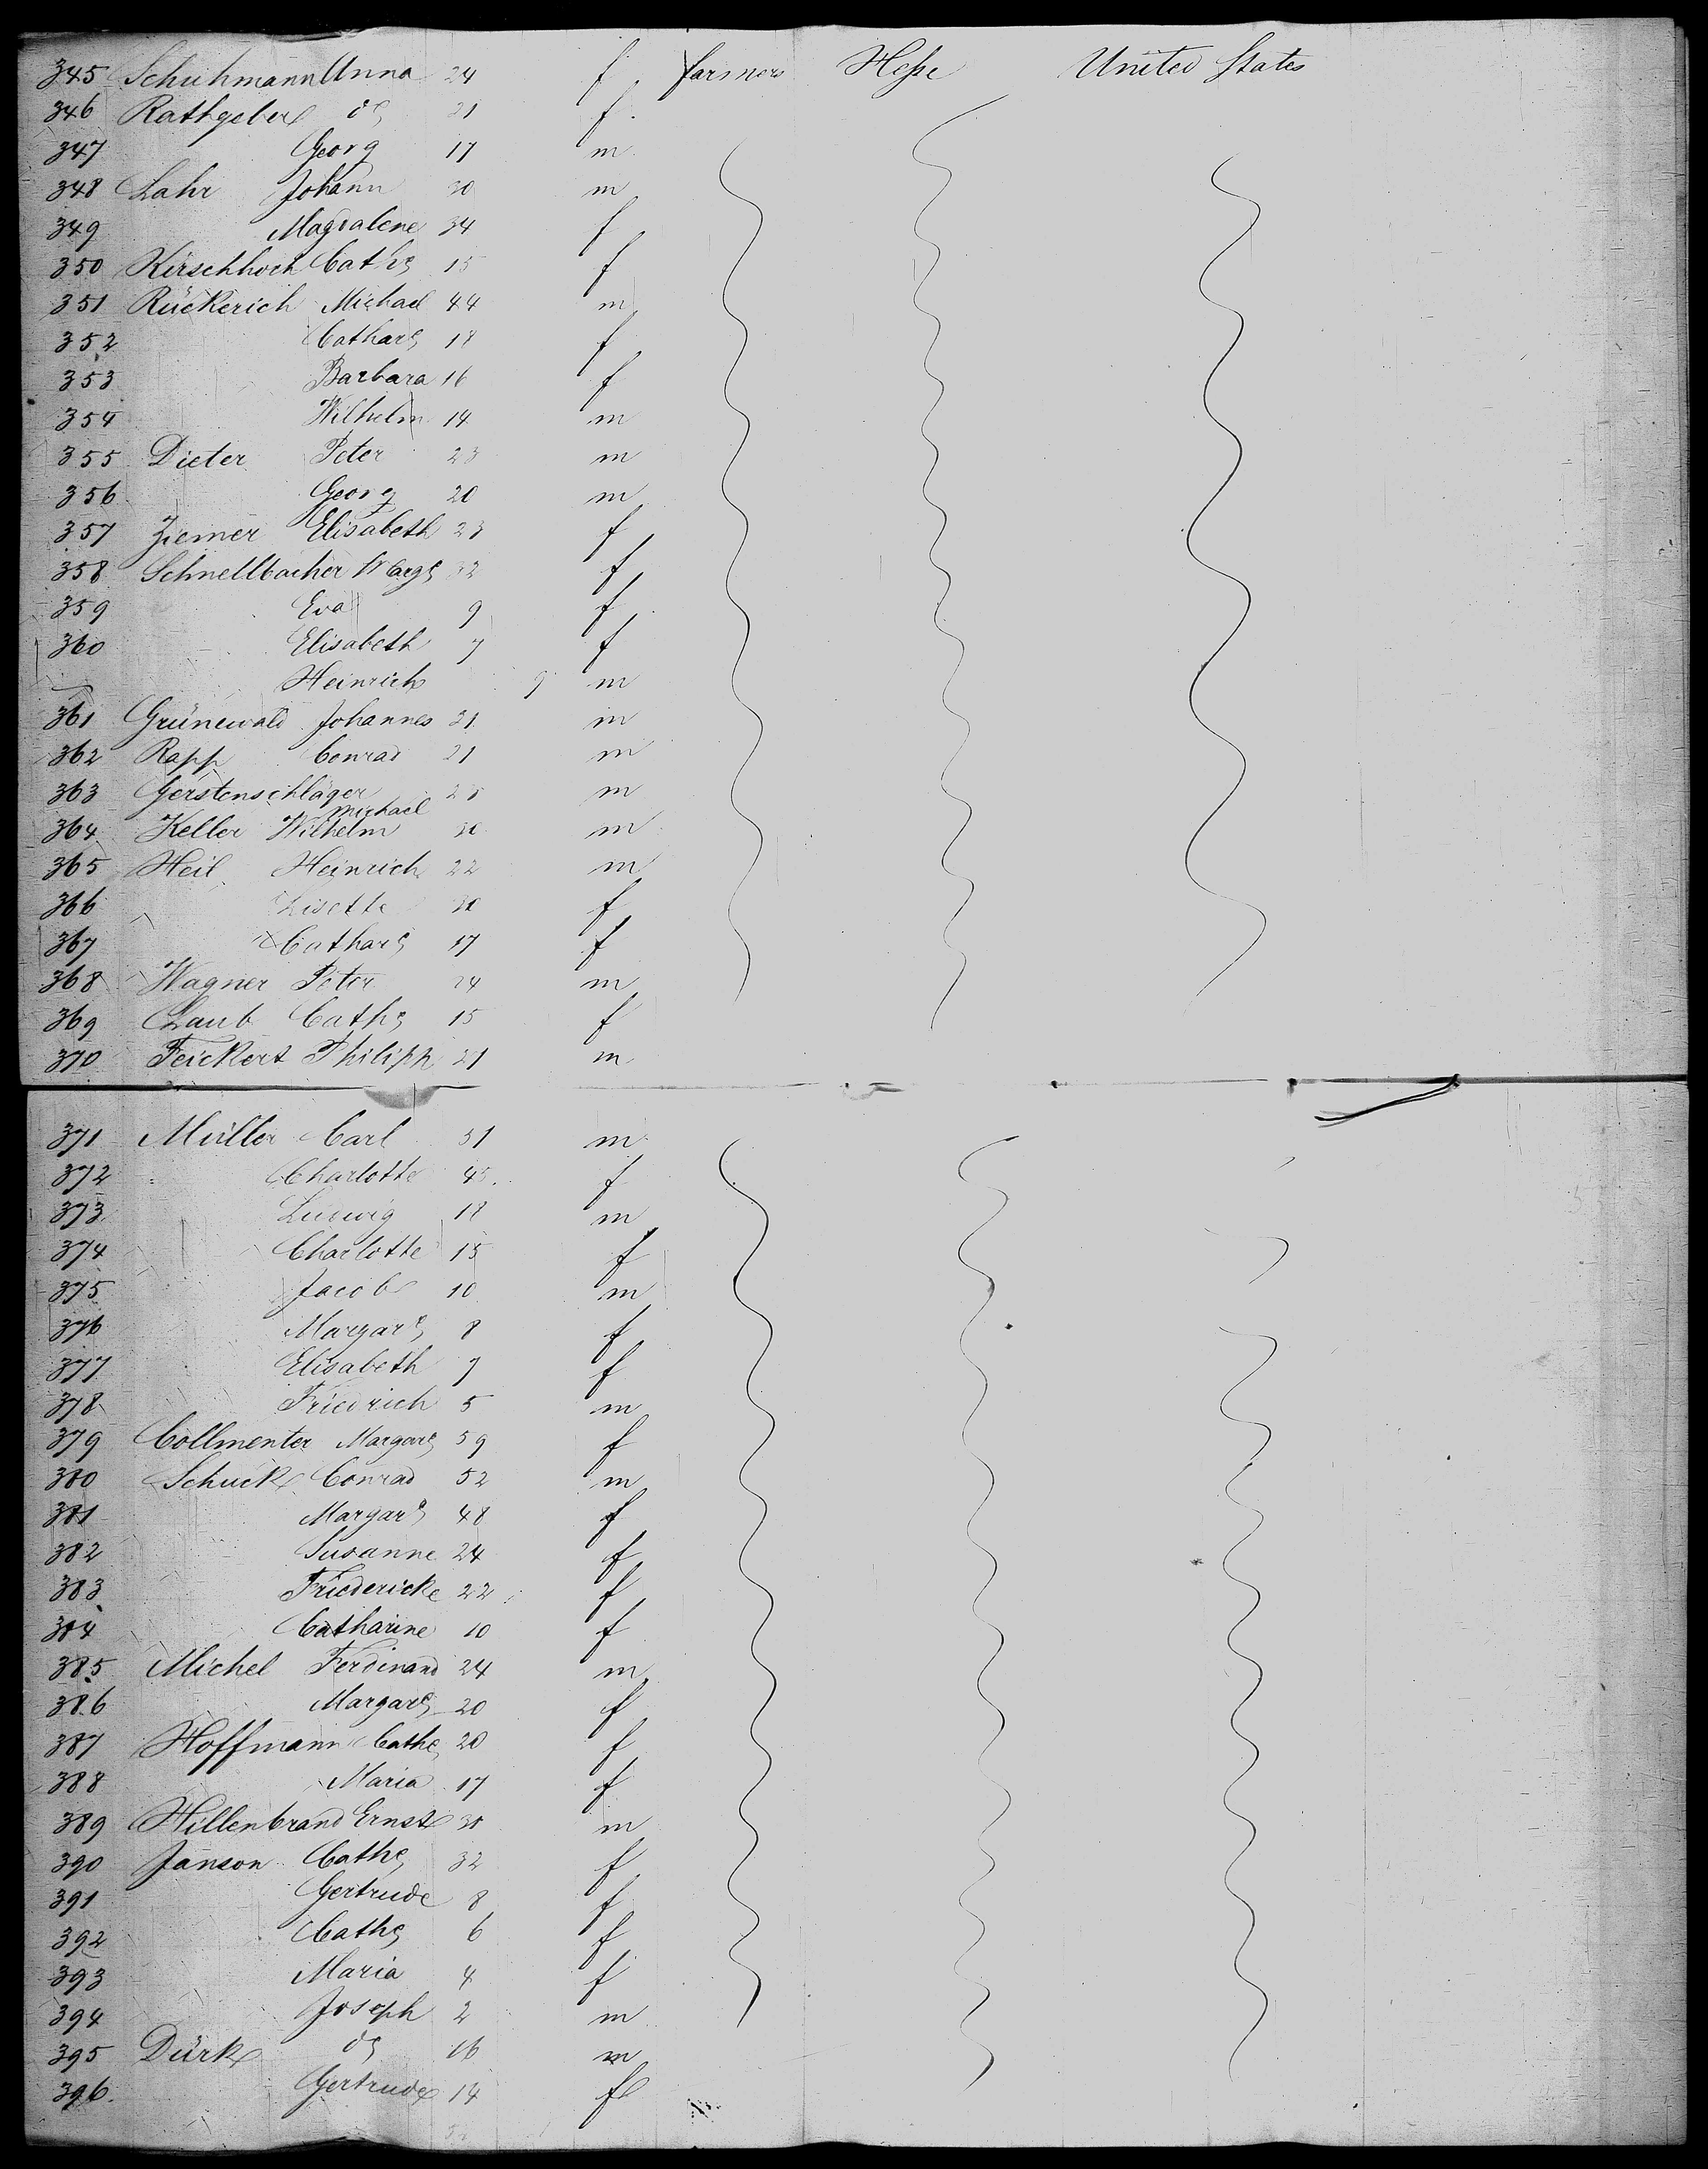 345 Schuhmann Anna 24 f. farmers Heße United States
346 Rathgeber do 21 f.
347 Georg 17 m
348 Lahr Johann 30 m
349 Magdalene 34 f
350 Kirschhoch Cath: 15 f
351 Rückerich Michael 44 m
352 Cathar: 18 f
353 Barbara 16 f
354 Wilhelm 14 m
355 Dieter Peter 23 m
356 Georg 20 m
357 Ziemer Elisabeth 23 f
358 Schnellbacher Marg: 32 f
359 Eva 9 f
360 Elisabeth 7 f
Heinrich 9 m
361 Grünewald Johannes 31 m
362 Rapp Conrad 21 m
363 Gerstenschläger Michael 25 m
364 Keller Wilhelm 30 m
365 Heil Heinrich 22 m
366 Lisette 30 f
367 Cathar: 17 f
368 Wagner Peter 24 m
369 Laub Cath: 15 f
370 Feickert Philipp 21 m
371 Müller Carl 51 m
372 Charlotte 45. f
373 Ludwig 18 m
374 Charlotte 15 f
375 Jacob 10 m
376 Margar: 8 f
377 Elisabeth 7 f
378 Friedrich 5 m
379 Collmenter Margar: 59 f
380 Schuck Conrad 52 m
381 Margar: 48 f
382 Susanne 24 f
383 Friedericke 22 f
384 Catharine 10 f
385 Michel Ferdinand 24 m
386 Margar: 20 f
387 Hoffmann Cath: 20 f
388 Maria 17 f
389 Hillenbrand Ernst 30 m
390 Janson Cath: 32 f
391 Gertrude 8 f
392 Cath: 6 f
393 Maria 4 f
394 Joseph 2 m
395 Dürk do 16 m
396. Gertrude 14 f